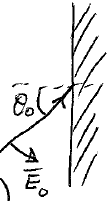 θ₀
E̅₀